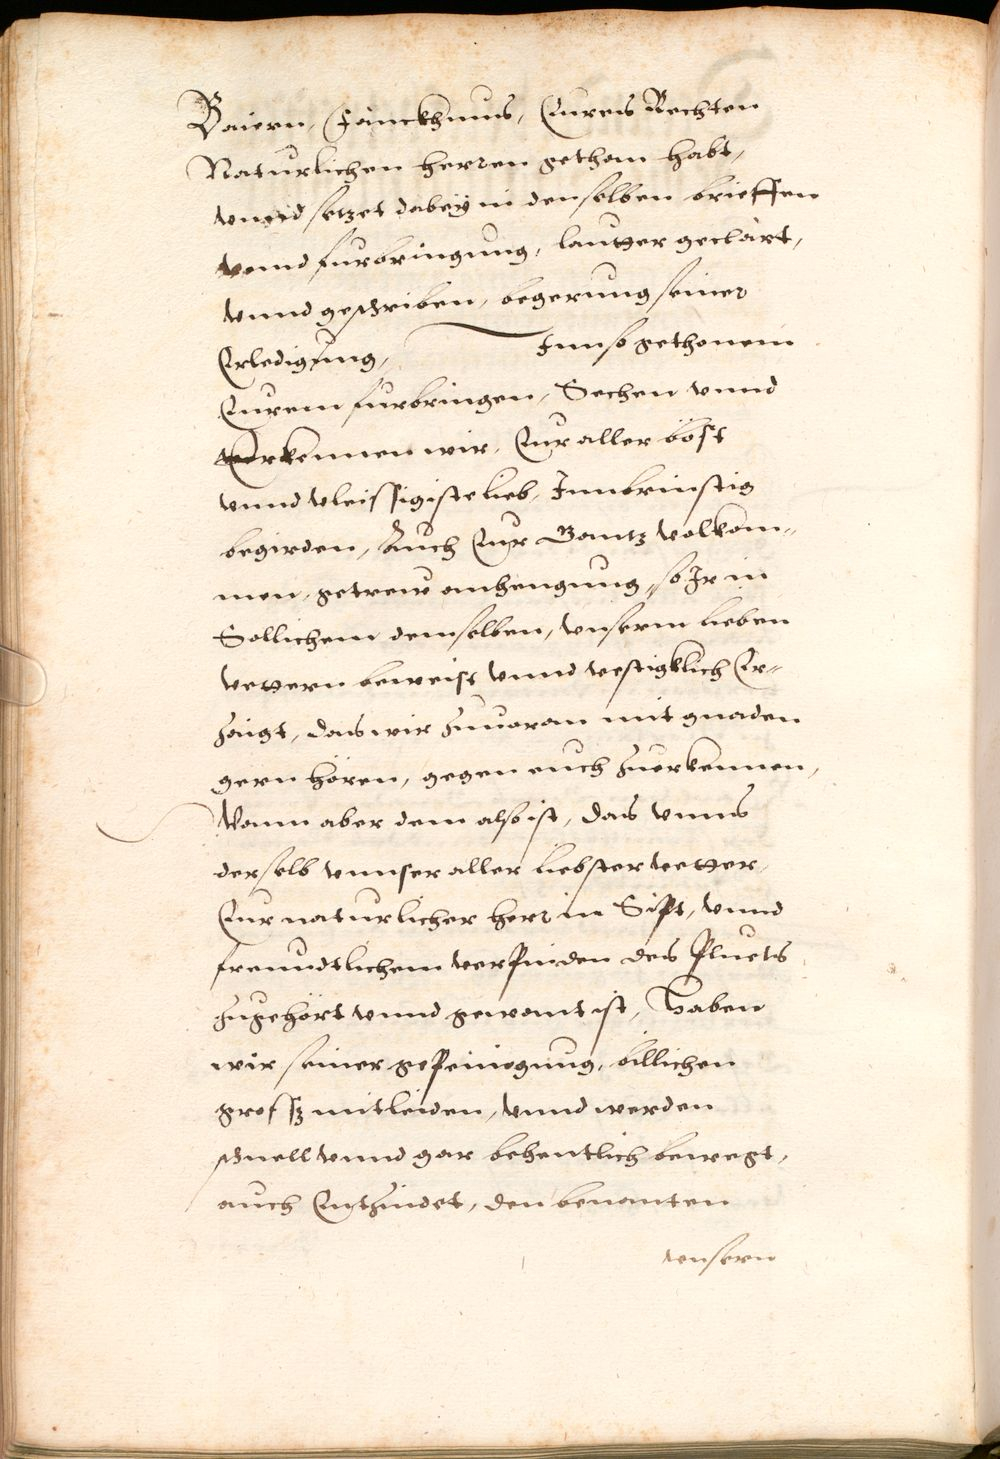 Baiern, Fänckhnus, Eurens Rechten
Naturlichen herren gethan habt,
vnnd setzet dabeÿ in denselben brieffen
vnnd furbringung, lautter geclärt,
vnnd geschriben, begerung seiner
Erledigung, Inn so gethonem
Eurem furbringen, Sechen vnnd
Erkennen wir, Eur aller böst
vnnd vleissigiste lieb, Innbrinstig
begirden, Auch Eur Gantz volkom-
men, getrew anhengung, so Ir in
Sollichem demselben, vnserm lieben
vettern beweist vnnd vestigklich Er-
zaigt, das wir zuuoran mit gnaden
gern hören, gegen euch zuerkennen,
Wann aber dem also ist, das vnns
derselb vnnser aller liebster vetter,
Eur naturlicher herr in Sipt, vnnd
freundtlichem verpinden des Pluets
zugehört vnnd gewant ist, Haben
wir seiner gepeinigung, billichen
grossz mitleiden, vnnd werden
schnell vnnd gar behentlich bewegt,
auch Entzindet, den benanten
vnsern